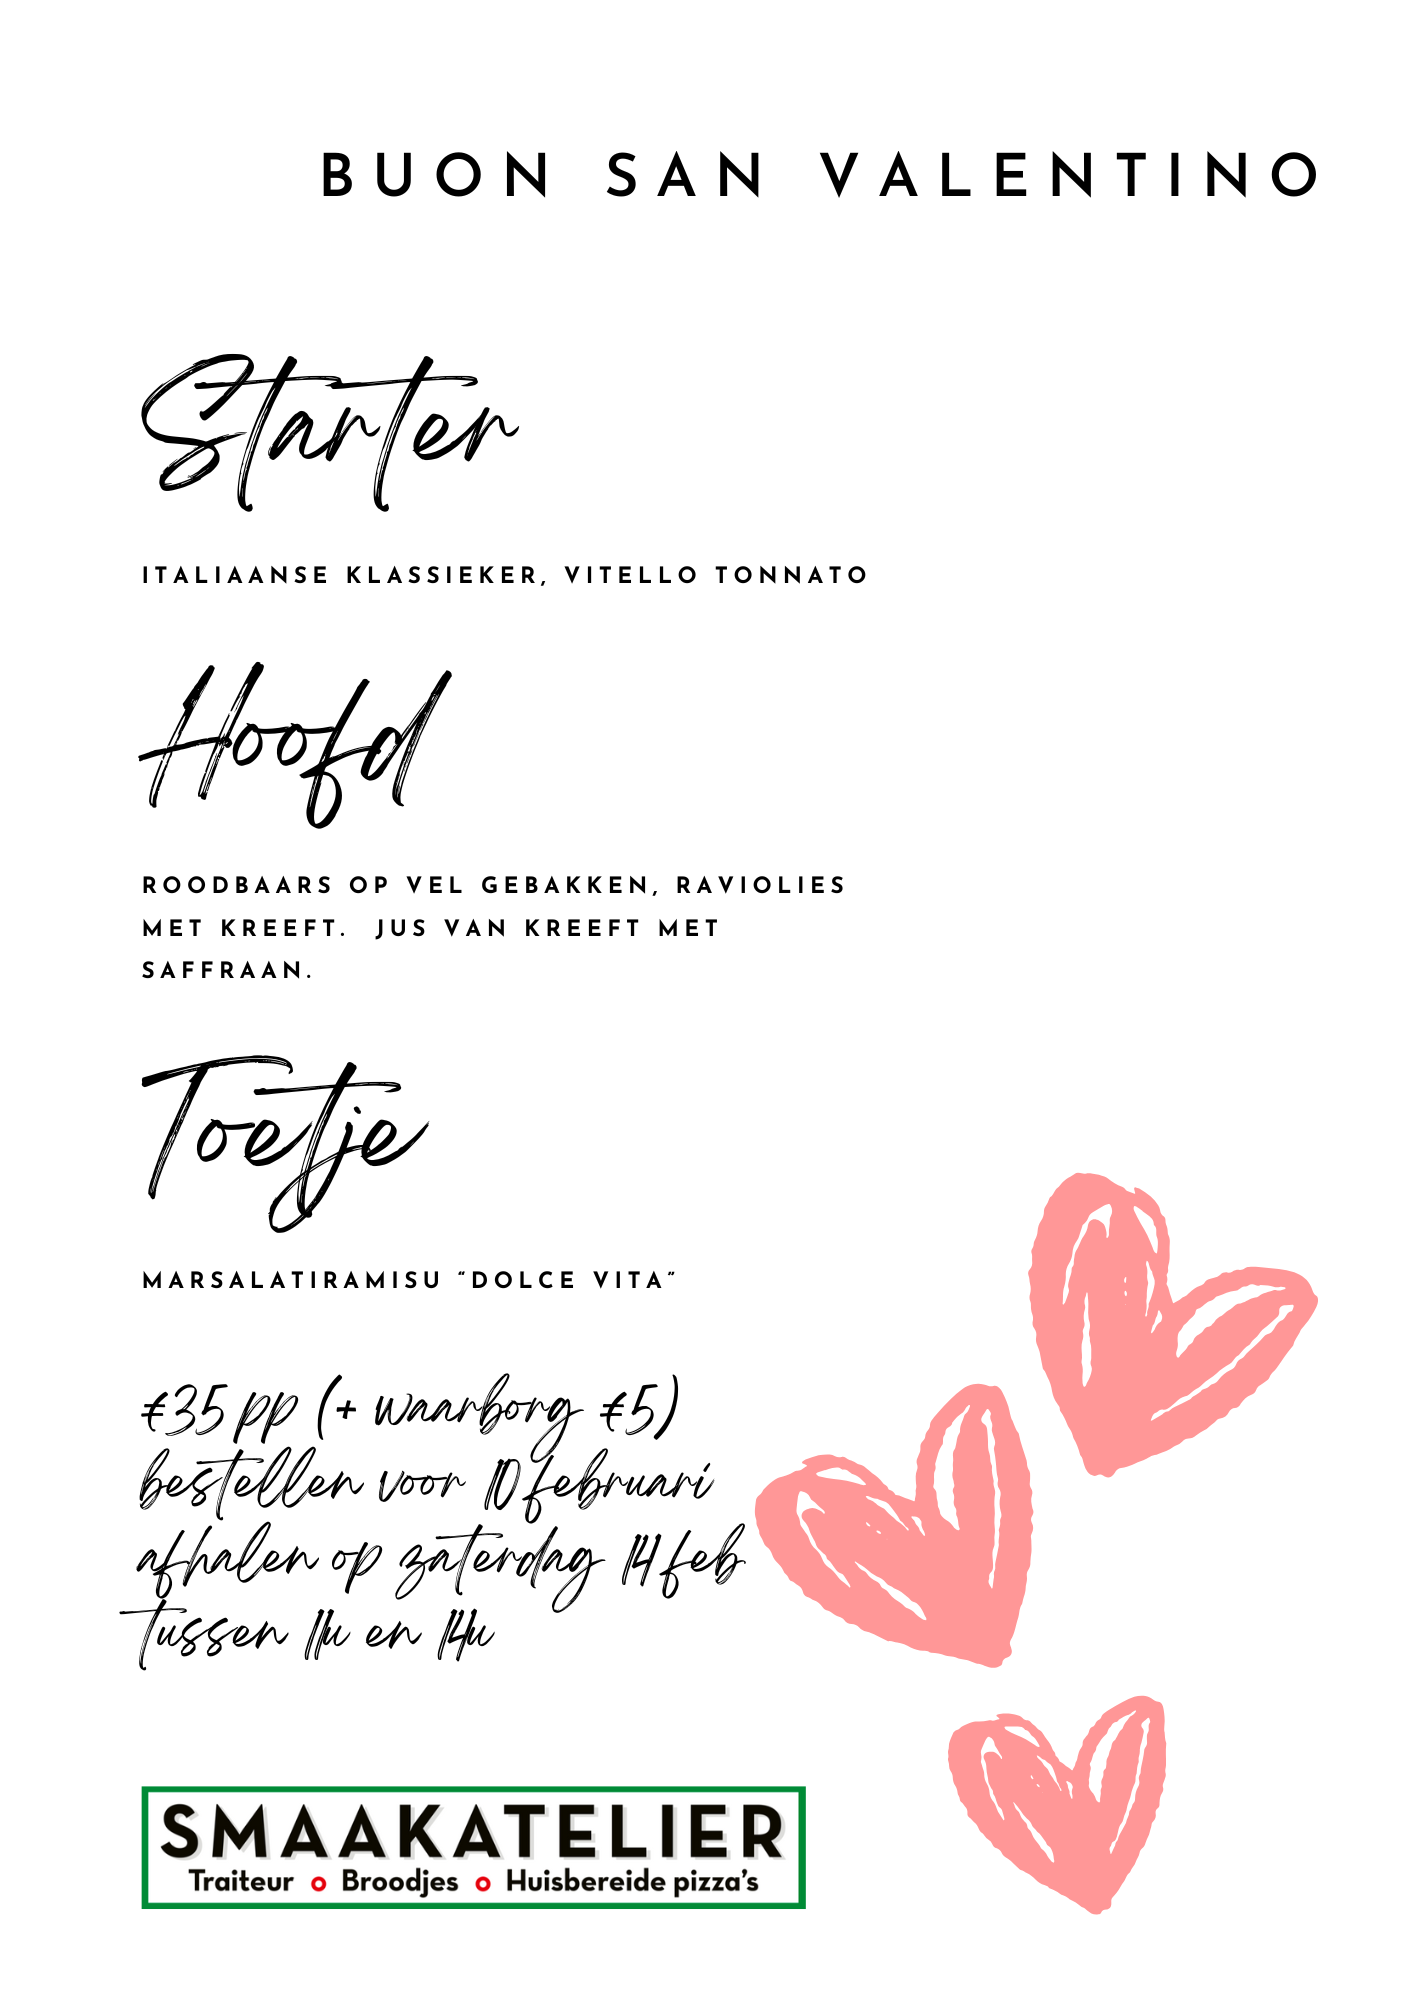 BUON SAN VALENTINO
Starter
ITALIAANSE KLASSIEKER, VITELLO TONNATO
Hoofd
ROODBAARS OP VEL GEBAKKEN, RAVIOLIES
MET KREEFT.  JUS VAN KREEFT MET
SAFFRAAN.
Toetje
MARSALATIRAMISU “DOLCE VITA”
€35 pp (+ waarborg €5)
bestellen voor 10 februari
afhalen op zaterdag 14 feb
tussen 11u en 14u
SMAAKATELIER
Traiteur o Broodjes o Huisbereide pizza's